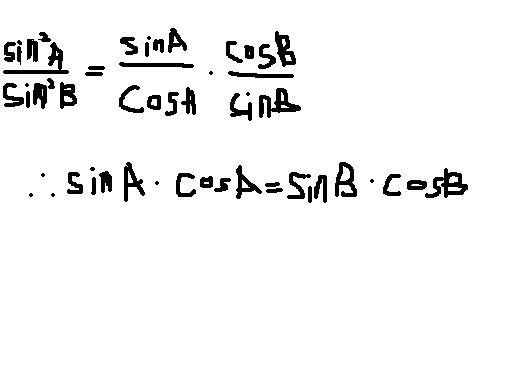 sin²A/sin²B = sinA/cosA · cosB/sinB
∴ sinA · cosA = sinB · cosB